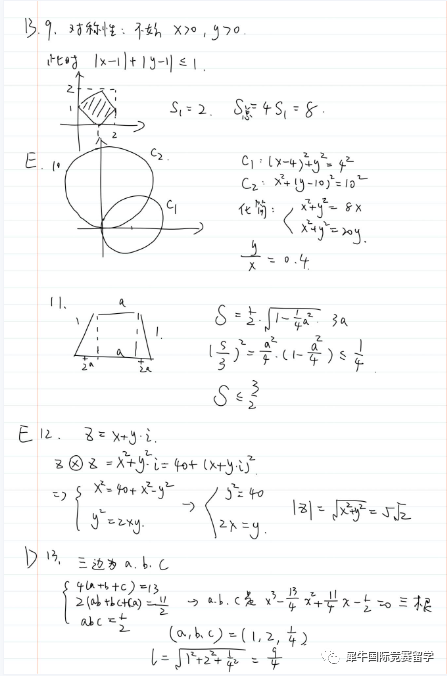 B. 9. 对称性: 不妨 x>0, y>0.
此时 |x-1|+|y-1| ≤ 1.
2
1
2
S₁=2. S总=4S₁=8.
E. 10
C₂
C₁
C₁: (x-4)²+y²=4²
C₂: x²+(y-10)²=10²
化简: { x²+y²=8x
x²+y²=20y.
y/x = 0.4.
11.
a
1
1.
a
½a
½a
S = ½·√(1-¼a²)·3a
(S/3)² = a²/4·(1-a²/4) ≤ 1/4.
S ≤ 3/2
E 12. z=x+y·i.
z⊗z = x²+y²·i = 40+(x+y·i)².
⇒ { x²=40+x²-y²
y²=2xy.
→ { y²=40
2x=y.
|z|=√(x²+y²)=5√2
D 13. 三边为 a.b.c
{ 4(a+b+c)=13
2(ab+bc+ca)=11/2
abc=½
→ a.b.c是 x³-13/4x²+11/4x-½=0 三根
(a,b,c)=(1,2,¼)
l=√(1²+2²+1/4²)=9/4
犀牛国际竞赛留学